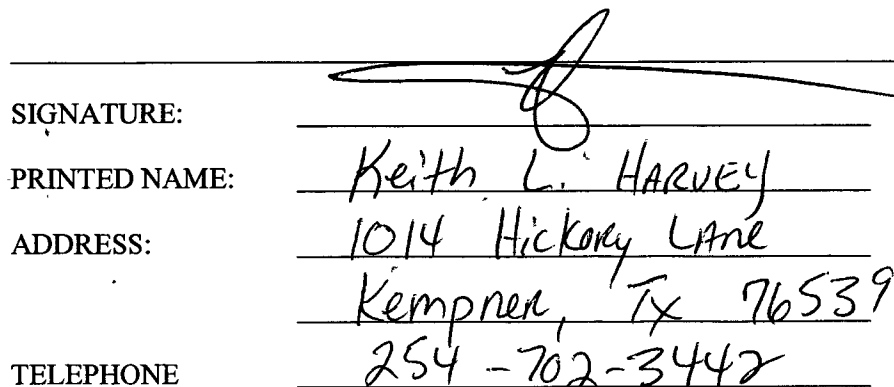 SIGNATURE:
PRINTED NAME: Keith L. HARVEY
ADDRESS: 1014 Hickory Lane
Kempner, Tx 76539
TELEPHONE 254-702-3442